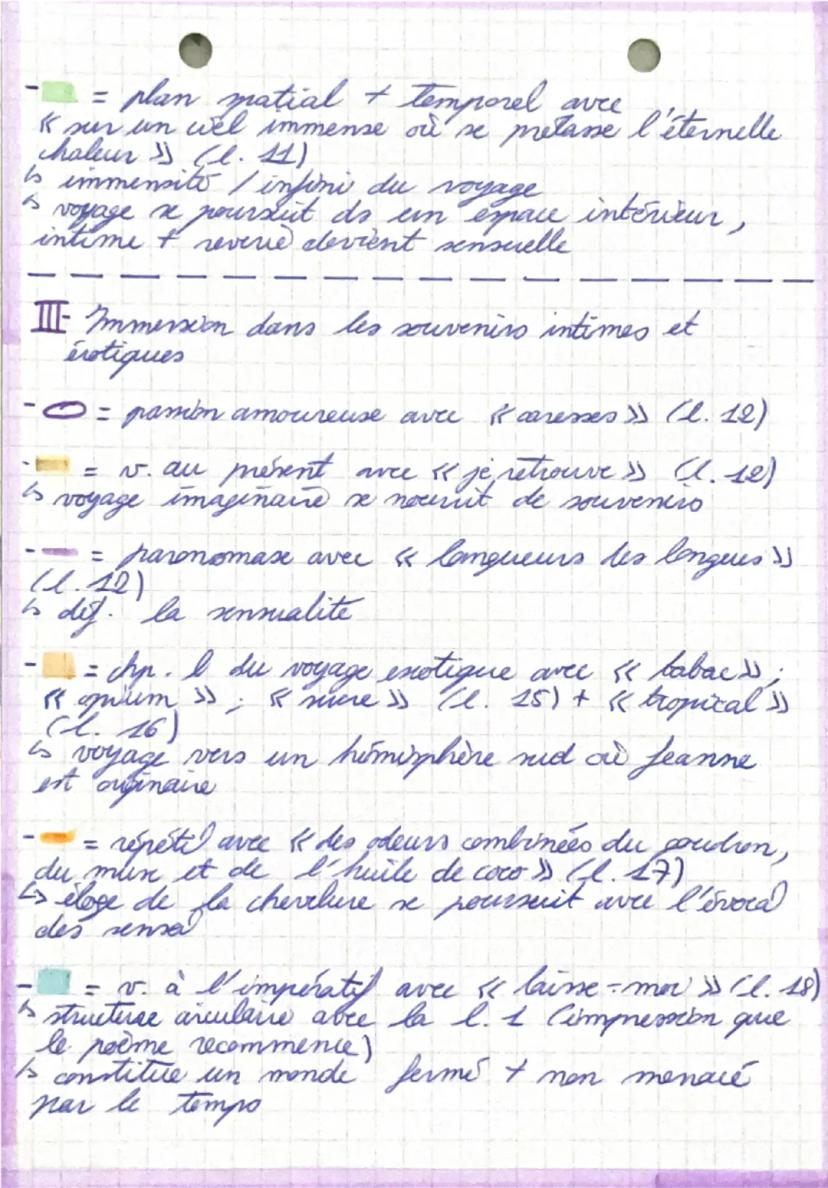 - = plan spatial + temporel avec
« sur un ciel immense où se prélasse l'éternelle
chaleur » (l. 11)
↳ immensité / infini du voyage
↳ voyage se poursuit ds un espace intérieur,
intime + reverie devient sensuelle
III- Immersion dans les souvenirs intimes et
érotiques
- = passion amoureuse avec « caresses » (l. 12)
- = v. au présent avec « je retrouve » (l. 12)
↳ voyage imaginaire se nourrit de souvenirs
- = paronomase avec « langueurs des longues »
(l. 12)
↳ déf. la sensualité
- = chp. l du voyage exotique avec « tabac » ;
« opium » ; « sucre » (l. 15) + « tropical »
(l. 16)
↳ voyage vers un hémisphère sud où Jeanne
est originaire
- = répét° avec « des odeurs combinées du goudron,
du musc et de l'huile de coco » (l. 17)
↳ éloge de la chevelure se poursuit avec l'évoca°
des sensa°
- = v. à l'impératif avec « laisse-moi » (l. 18)
↳ structure circulaire avec la l. 1 (impression que
le poème recommence)
↳ constitue un monde fermé + non menacé
par le temps